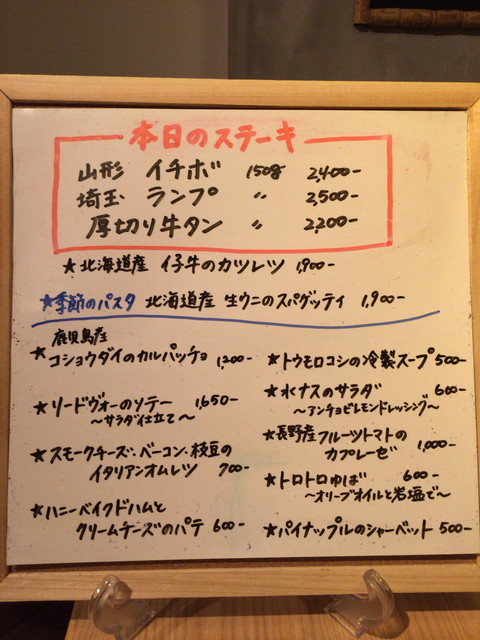 本日のステーキ
山形 イチボ 150g 2,400-
埼玉 ランプ 〃 2,500-
厚切り牛タン 〃 2,200-
★北海道産 仔牛のカツレツ 1,900-
★季節のパスタ 北海道産 生ウニのスパゲッティ 1,900-
鹿児島産
★コショウダイのカルパッチョ 1,200-
★リードヴォーのソテー 1,650-
〜サラダ仕立て〜
★スモークチーズ・ベーコン・枝豆の
イタリアンオムレツ 700-
★ハニーベイクドハムと
クリームチーズのパテ 600-
★トウモロコシの冷製スープ 500-
★水ナスのサラダ 600-
〜アンチョビレモンドレッシング〜
★長野産フルーツトマトの
カプレーゼ 1,000-
★トロトロゆば 600-
〜オリーブオイルと岩塩で〜
★パイナップルのシャーベット 500-